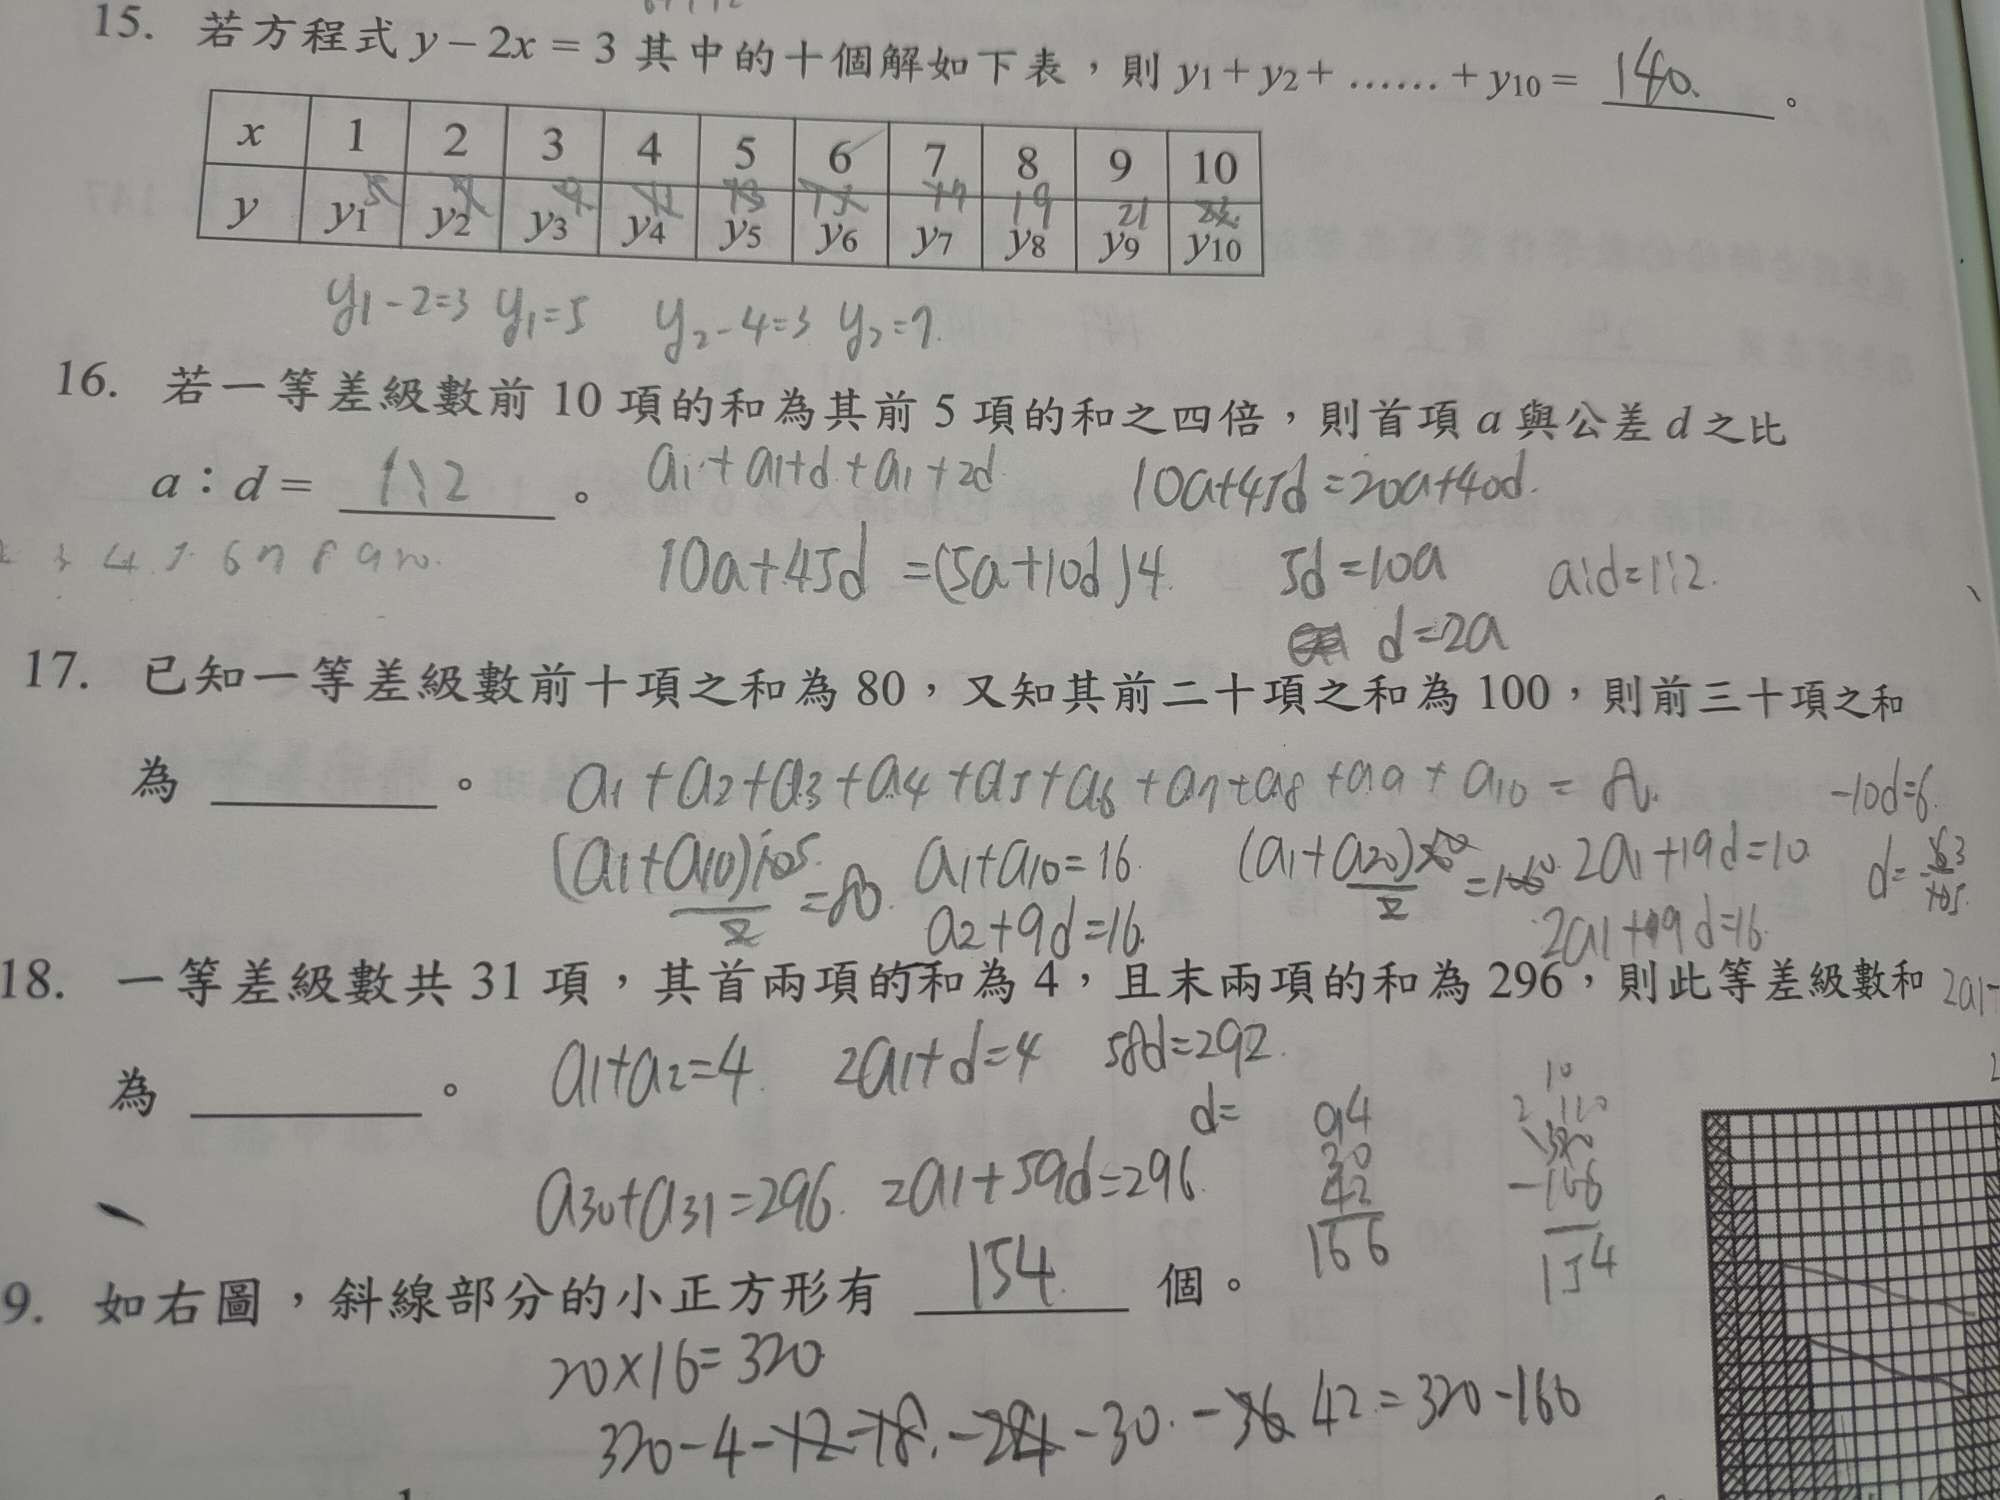 15. 若方程式 y – 2x = 3 其中的十個解如下表，則 y1 + y2 + …… + y10 = 140. 。
x 1 2 3 4 5 6 7 8 9 10
5 7 9 11 13 15 17 19 21
y y1 y2 y3 y4 y5 y6 y7 y8 y9 y10
y1-2=3 y1=5 y2-4=3 y2=7.
16. 若一等差級數前 10 項的和為其前 5 項的和之四倍，則首項 a 與公差 d 之比
a：d = 1:2 。 a1+a1+d+a1+2d 10a+45d=20a+40d.
3 4 5 6 7 8 9 10. 10a+45d =(5a+10d)4 5d=10a a:d=1:2.
d=2a
17. 已知一等差級數前十項之和為 80，又知其前二十項之和為 100，則前三十項之和
為 。 a1+a2+a3+a4+a5+a6+a7+a8+a9+a10=80. -10d=6.
(a1+a10)105/2=80. a1+a10=16. (a1+a20) 2a1+19d=10.
a2+9d=16. 2a1+9d=16.
18. 一等差級數共 31 項，其首兩項的和為 4，且末兩項的和為 296，則此等差級數和
為 。 a1+a2=4. 2a1+d=4 58d=292.
d= 94
30
42
166
10
-166
154
a30+a31=296. 2a1+59d=296.
9. 如右圖，斜線部分的小正方形有 154. 個。
20×16=320.
320-4-12-18.-24-30.-36 42.=320-166